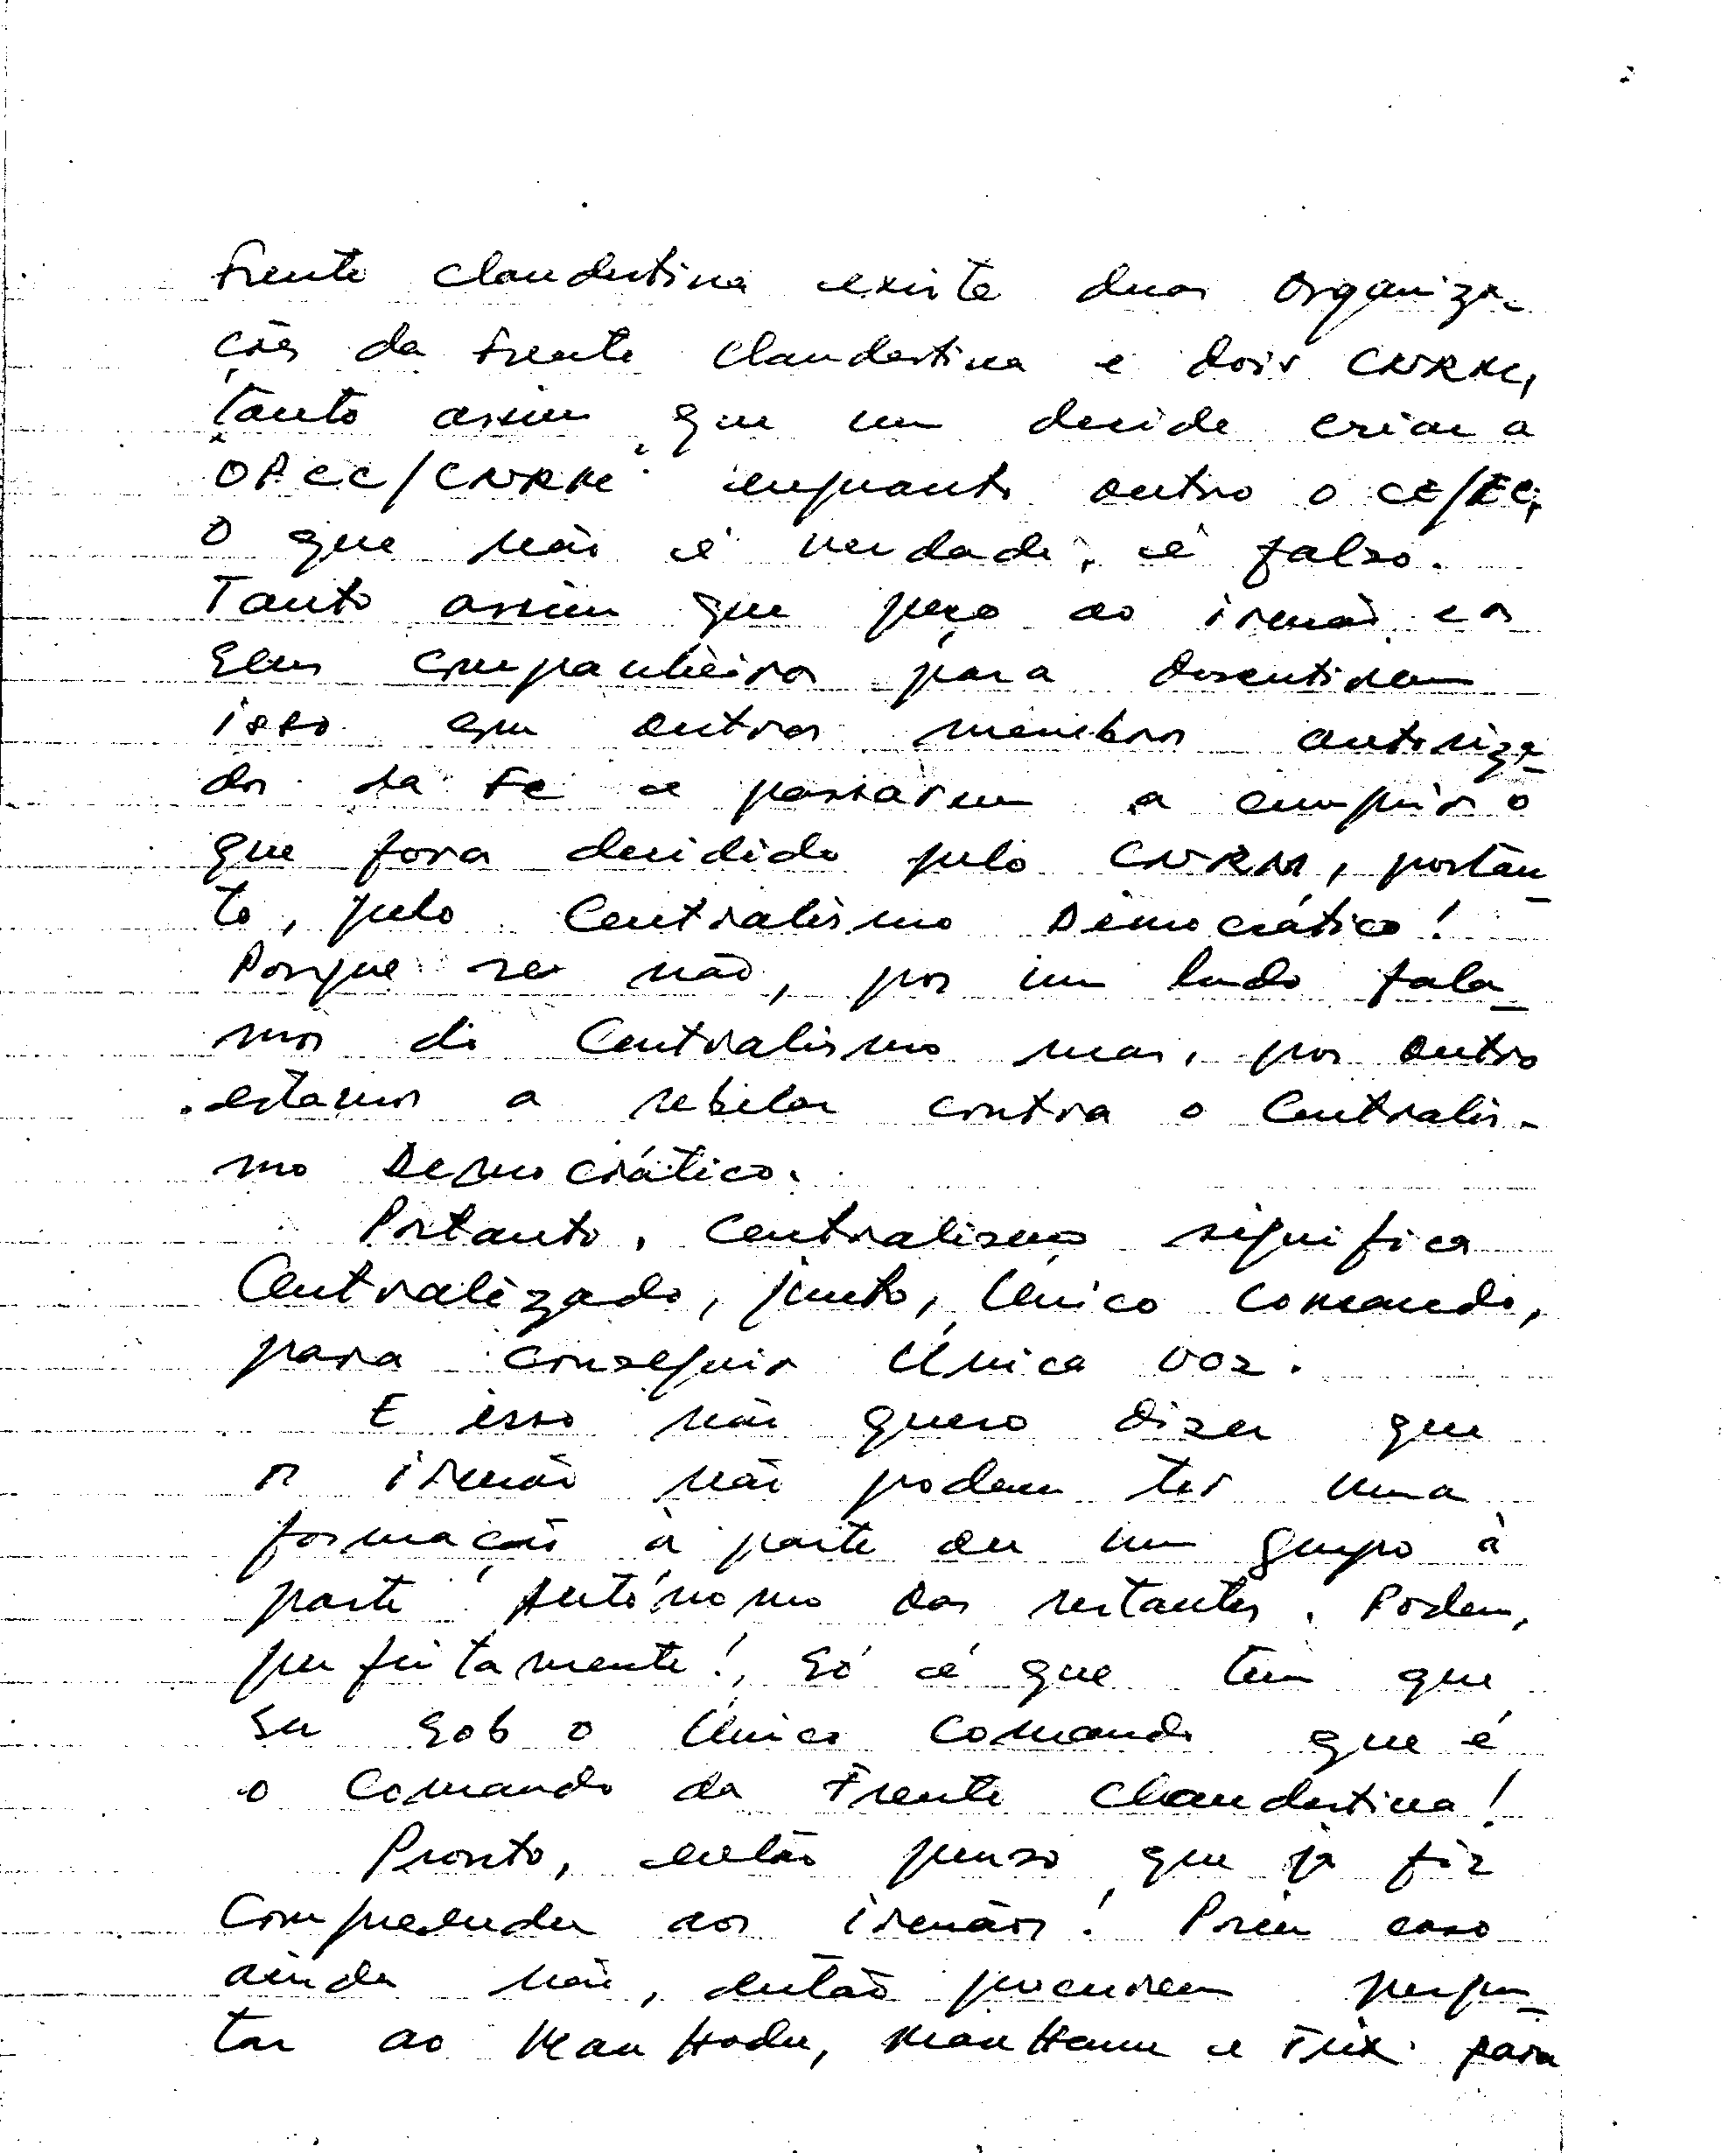 frente clandestina existe duas organiza-
ções da frente clandestina e dois CNRM,
tanto assim que um decide criar a
OPCC/CNRM enquanto outro o CE/FC,
o que não é verdade, é falso.
Tanto assim que peço ao irmão e os
seus companheiros para
isso em outros membros autoriza-
dos da FC e passarem a cumprir o
que fora decidido pelo CNRM, portan-
to, pelo Centralismo Democrático!
Porque se não, por um lado fala-
mos de Centralismo mas, por outro
estamos a rebelar contra o Centralis-
mo Democrático.
Portanto, Centralismo significa
Centralizado, junto, Único Comando,
para conseguir Única voz.
E isso não quero dizer que
os irmãos não podem ter uma
formação à parte ou um grupo à
parte Autónomo dos restantes. Podem,
perfeitamente!, só é que tem que
ser sob o Único Comando que é
o Comando da Frente Clandestina!
Pronto, então penso que já fiz
Compreender aos irmãos! Porém caso
ainda não, então procurem pergun-
tar ao Mau Hodu, Mau Hunu e para